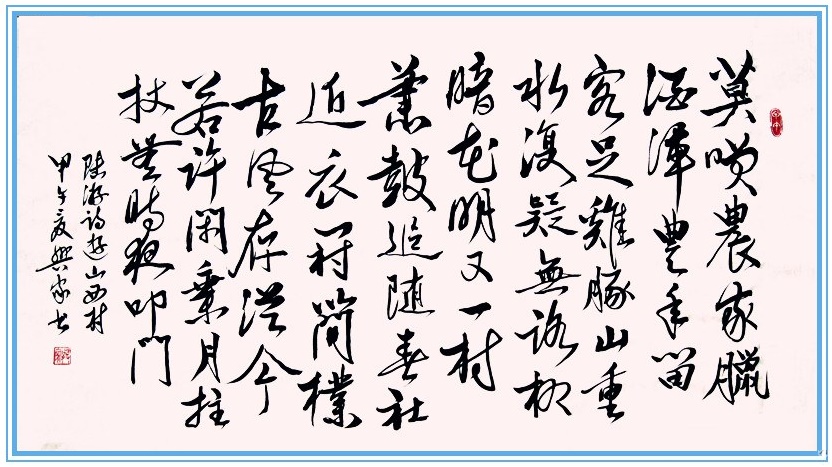 莫咲農家臘
酒渾豐年留
客足雞豚山重
水復疑無路柳
暗花明又一村
蕭鼓追隨春社
近衣冠簡樸
古風存從今
若許閑乘月拄
杖無時夜叩門
陸游詩遊山西村
甲午夏興家書